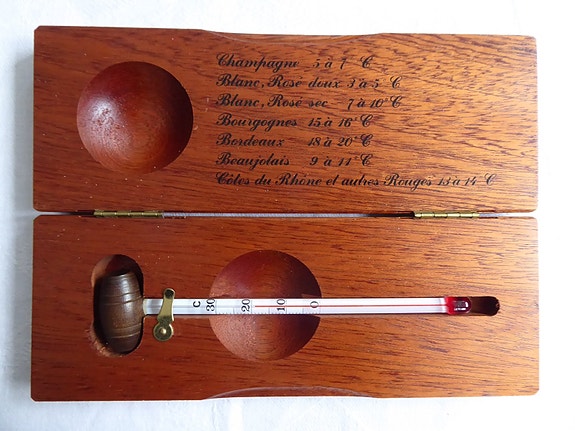 Champagne 5 à 7 °C
Blanc, Rosé doux 3 à 5 °C
Blanc, Rosé sec 7 à 10 °C
Bourgognes 15 à 16 °C
Bordeaux 18 à 20 °C
Beaujolais 9 à 11 °C
Côtes du Rhône et autres Rouges 13 à 14 °C
C 30 20 10 0